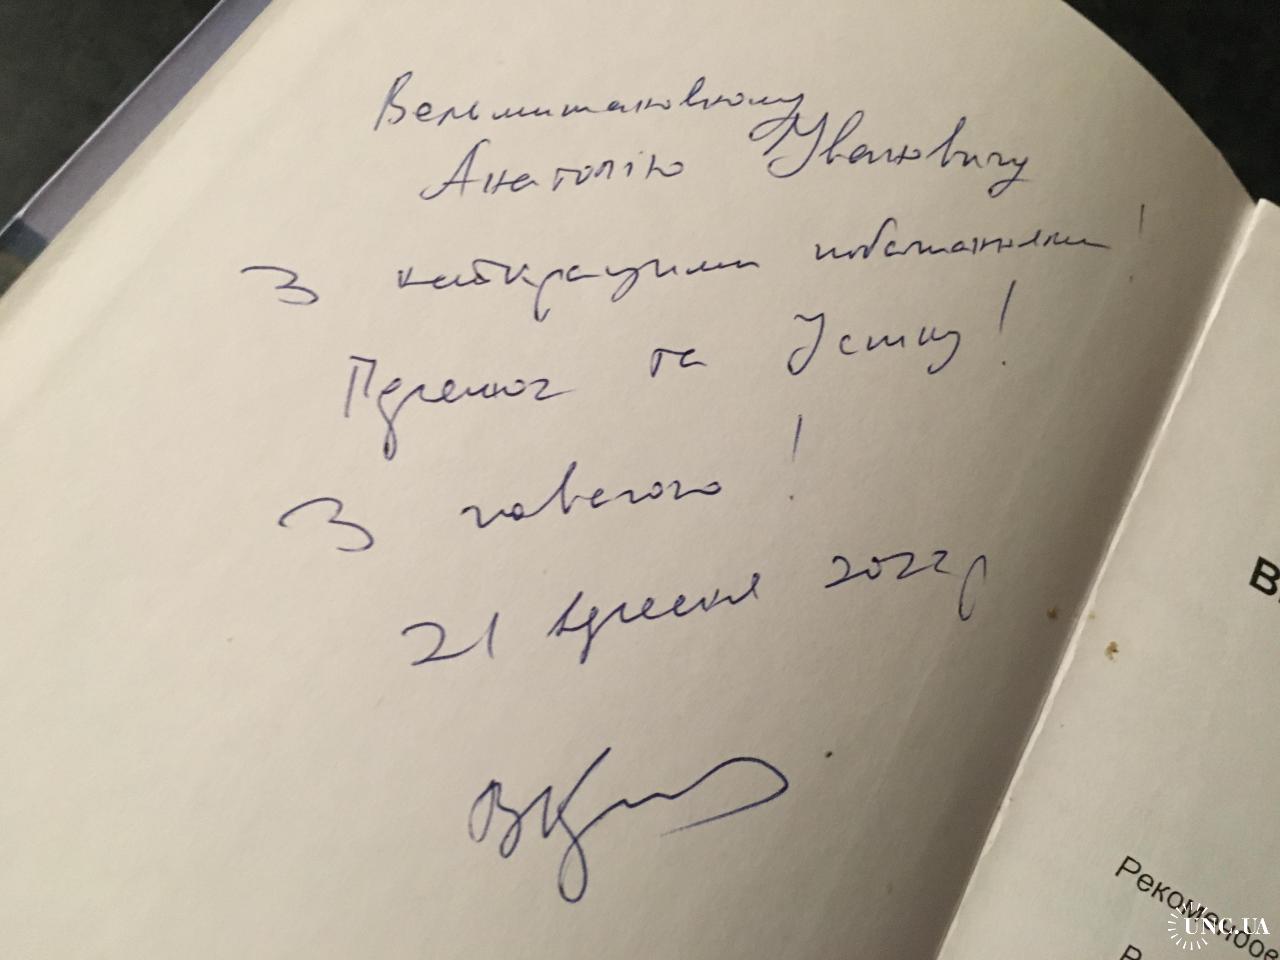 Вельмишановному
Анатолію Івановичу
З найкращими побажаннями!
Перемог та Успіху!
З повагою!
21 вересня 2022 р
В
Рекомендов
Р
UNC.UA